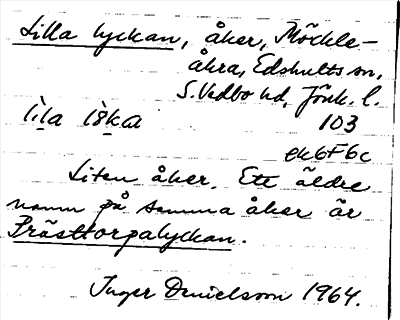 Lilla lyckan, åker, Möckle-
åkra, Edshults sn,
S. Vedbo hd, Jönk. l.
103
ek6F6c
Liten åker. Ett äldre
namn på samma åker är
Prästtorpalyckan.
Inger Danielsson 1964.